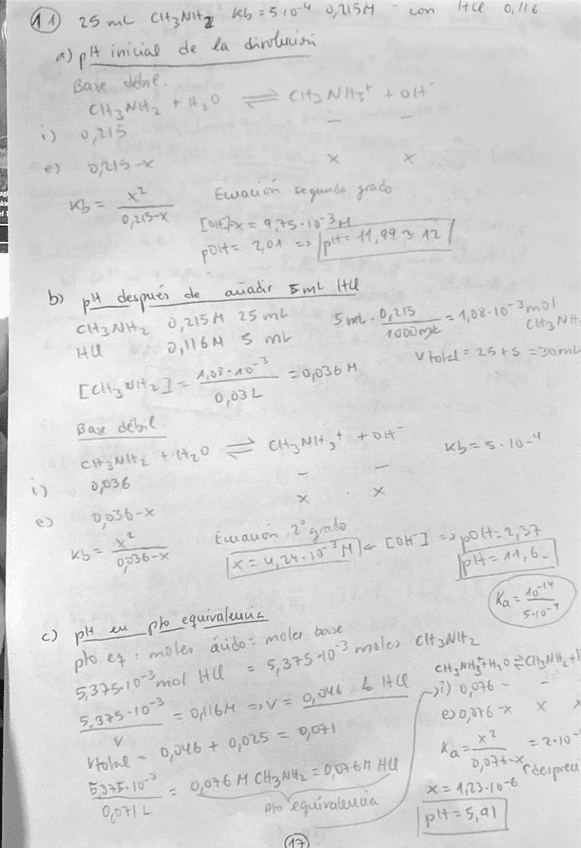 11 25 mL CH3NH2 Kb = 5·10⁻⁴ 0,215M - con HCl 0,116.
a) pH inicial de la disolución
Base débil.
CH3NH2 + H2O ⇌ CH3NH3⁺ + OH⁻
i) 0,215 - -
e) 0,215-x x x
Kb = x²/(0,215-x) Ecuación segundo grado
[OH]=x = 9,75·10⁻³ M
pOH = 2,01 => pH = 11,99 ≈ 12
b) pH después de añadir 5mL HCl
CH3NH2 0,215M 25 mL
HCl 0,116M 5 mL
5mL · 0,215/1000mL = 1,08·10⁻³ mol CH3NH
V total = 25+5 = 30mL
[CH3NH2] = 1,08·10⁻³/0,03L = 0,036 M
Base débil.
CH3NH2 + H2O ⇌ CH3NH3⁺ + OH⁻ Kb = 5·10⁻⁴
i) 0,036 - -
e) 0,036-x x x
Kb = x²/(0,036-x) Ecuación 2º grado
x = 4,24·10⁻³ M ← [OH⁻] => pOH = 2,37
pH = 11,6
Ka = 10⁻¹⁴/5·10⁻⁴
c) pH en pto equivalencia
pto eq: moles ácido = moles base
5,375·10⁻³ mol HCl = 5,375·10⁻³ moles CH3NH2
5,375·10⁻³/V = 0,116M => V = 0,046 L HCl
Vtotal = 0,046 + 0,025 = 0,071
5,375·10⁻³/0,071L = 0,076 M CH3NH2 = 0,076M HCl
pto equivalencia
CH3NH3⁺ + H2O ⇌ CH3NH2 + H
i) 0,076 - -
e) 0,076-x x x
Ka = x²/(0,076-x) = 2·10⁻
(despreci
x = 1,23·10⁻⁶
pH = 5,91
17